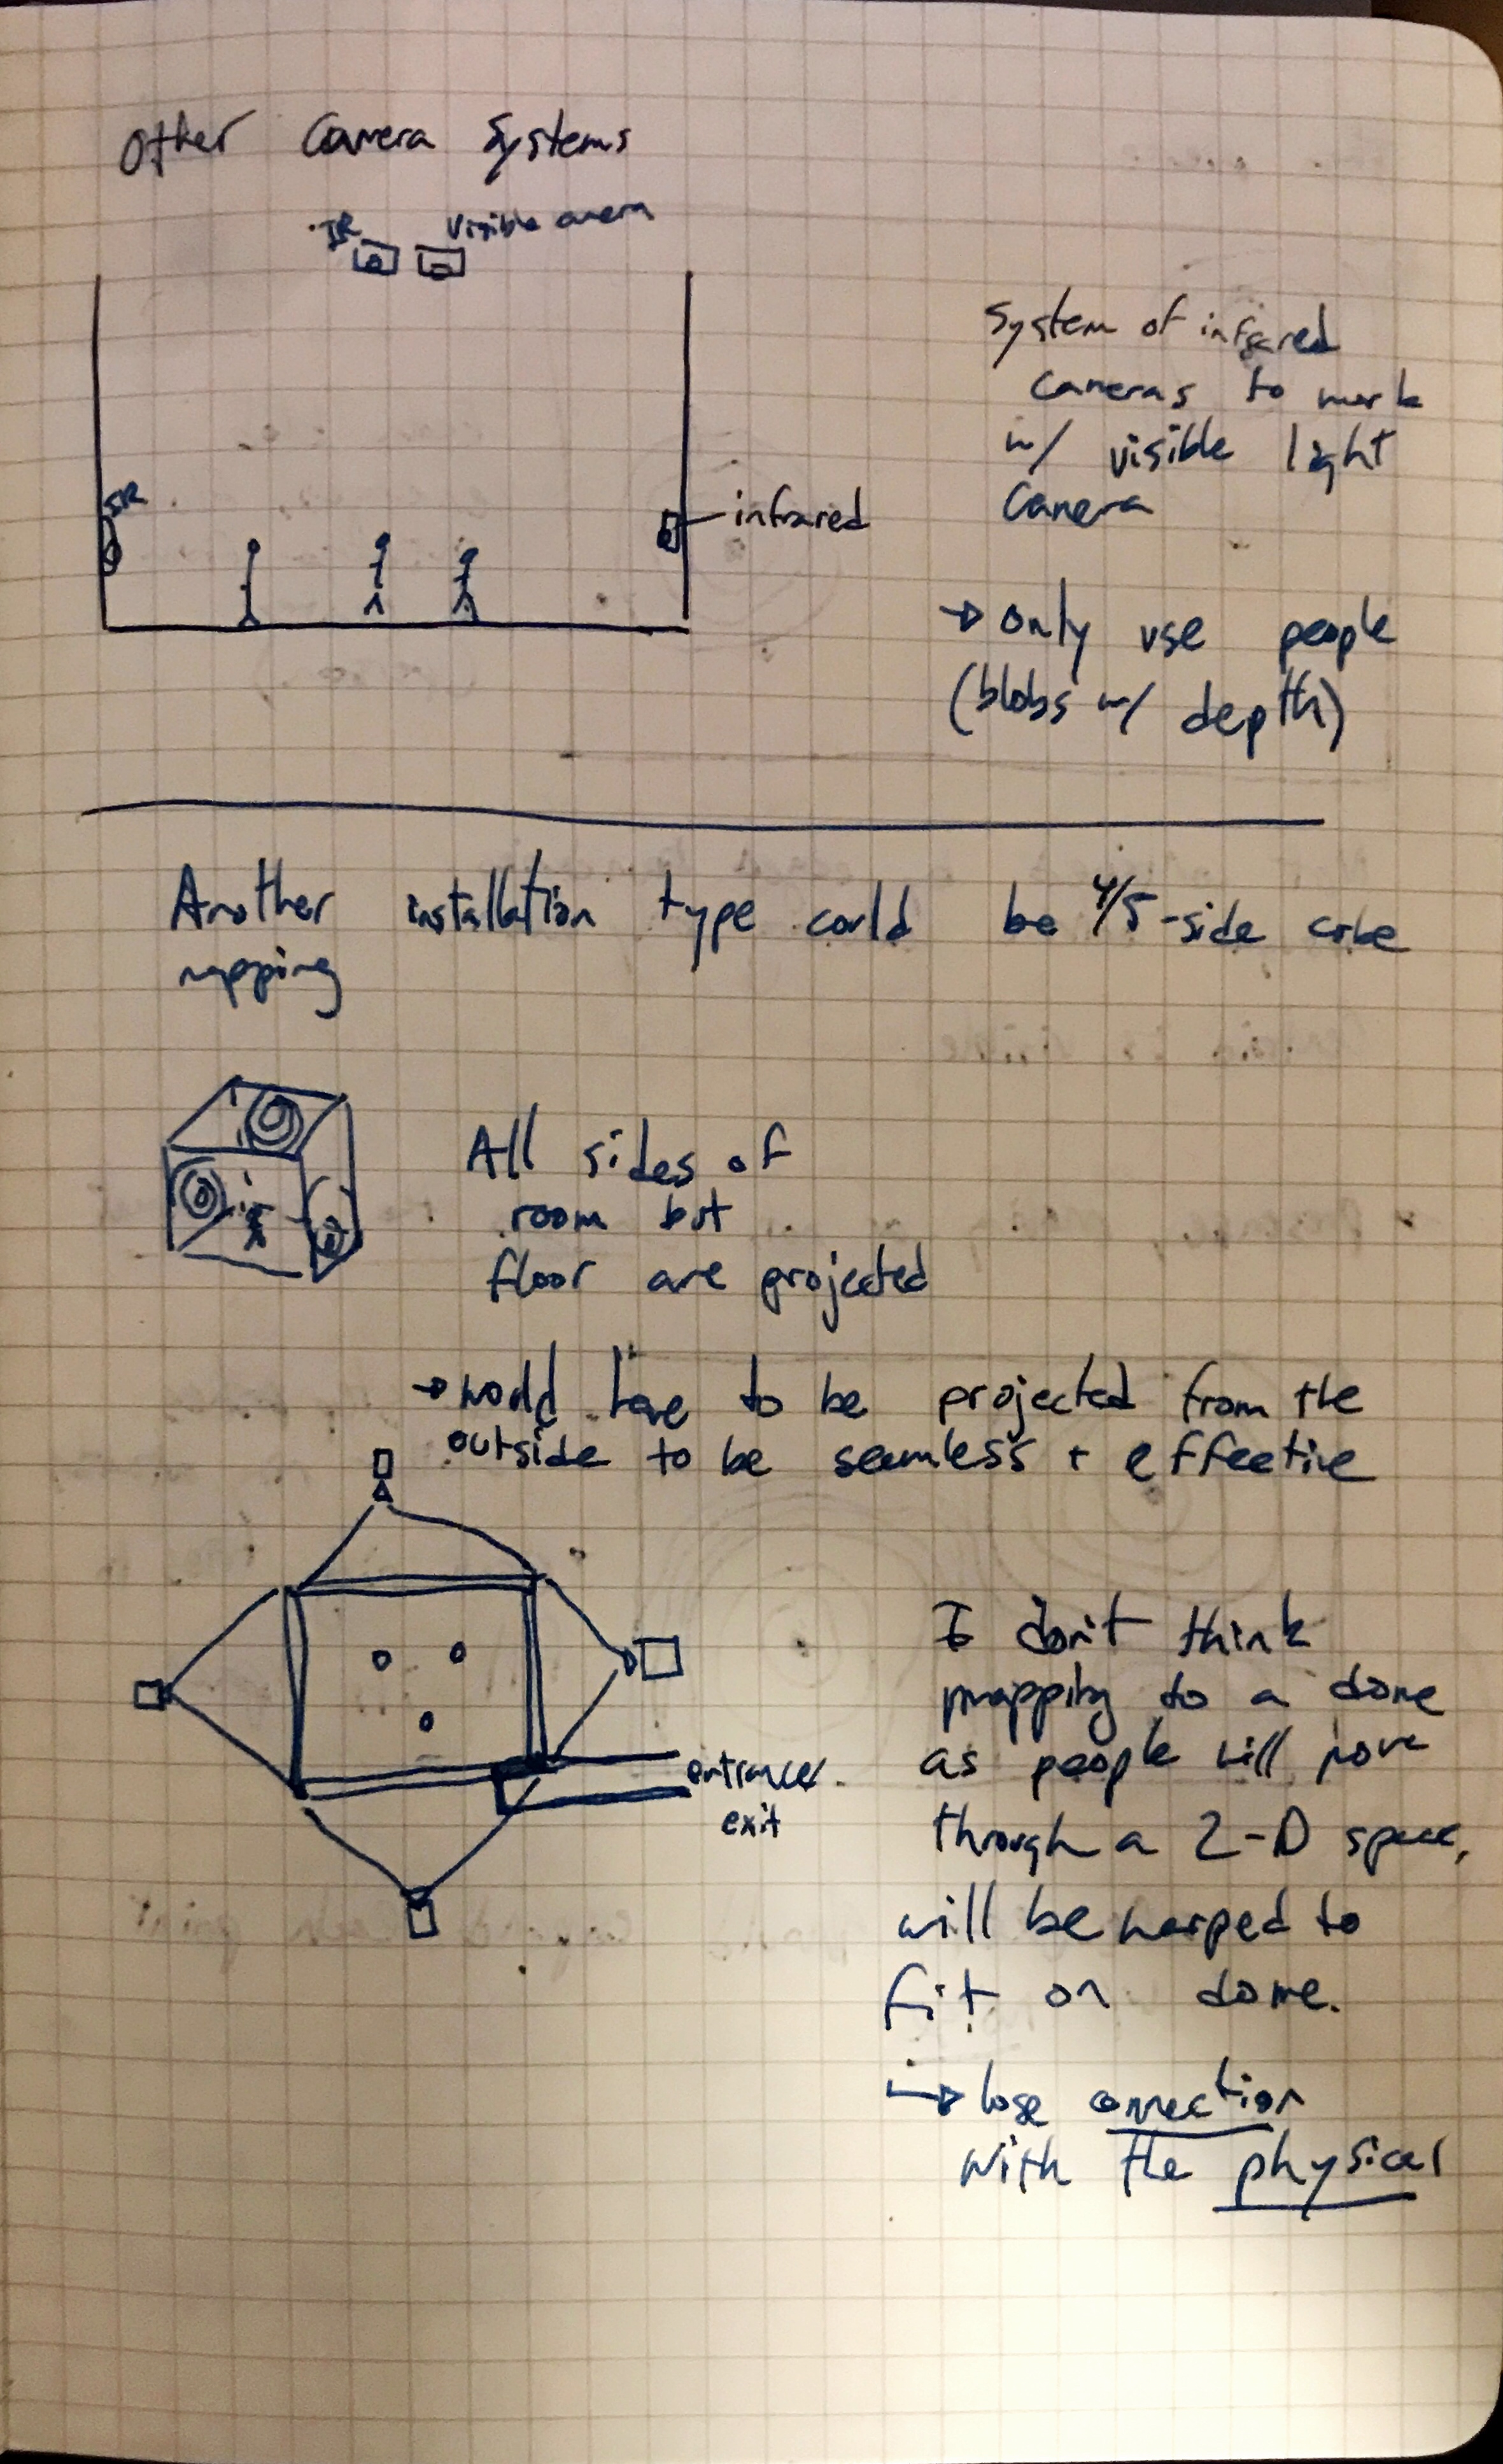 Other Camera Systems
IR
Visible camera
System of infrared
cameras to mark
w/ visible light
Camera
IR
infrared
→ only use people
(blobs w/ depth)
Another installation type could be 4/5-side cube
mapping
All sides of
room but
floor are projected
→ would have to be projected from the
outside to be seamless + effective
entrance/
exit
I don't think
mapping to a dome
as people will move
through a 2-D space,
will be warped to
fit on dome.
→ lose connection
with the physical